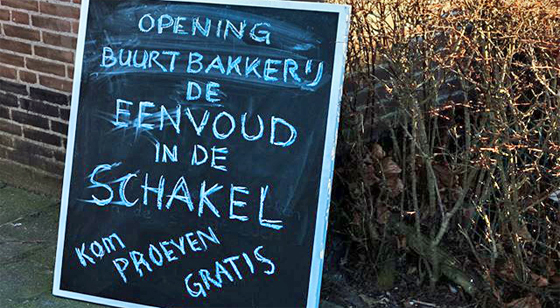 OPENING
BUURTBAKKERIJ
DE
EENVOUD
IN DE
SCHAKEL
KOM
PROEVEN
GRATIS